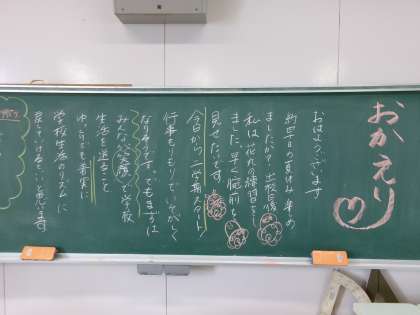 おかえり
おはようございます
新四年の夏休み楽しめ
ましたか?
私は花丸の練習をし
ました。早く腕前を
見せたいです。
今日から二学期スタート
行事ももりもりでいそがしく
なりそうです。でもまずは
みんなが笑顔で学校
生活を送ること
ゆっくりでも着実に
学校生活のリズムに
戻していけるといいと思います